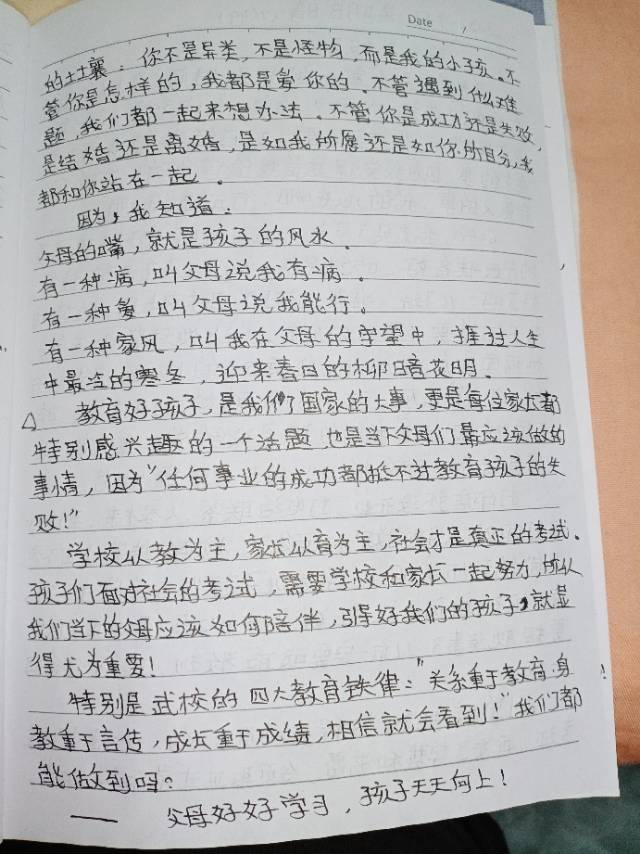 Date
的土壤：你不是异类，不是怪物，而是我的小孩。不
管你是怎样的，我都是爱你的。不管遇到什么难
题，我们都一起来想办法。不管你是成功还是失败，
是结婚还是离婚，是如我所愿还是如你所自分，我
都和你站在一起。
因为，我知道：
父母的嘴，就是孩子的风水。
有一种病，叫父母说我有病。
有一种爱，叫父母说我能行。
有一种家风，叫我在父母的守望中，捱过人生
中最冷的寒冬，迎来春日的柳暗花明。
教育好孩子，是我们国家的大事，更是每位家长都
特别感兴趣的一个话题，也是当下父母们最应该做的
事情，因为"任何事业的成功都抵不过教育孩子的失
败！"
学校以教为主，家长以育为主，社会才是真正的考试。
孩子们面对社会的考试，需要学校和家长一起努力，所以
我们当下的父母应该如何陪伴，引导好我们的孩子，就显
得尤为重要！
特别是武校的四大教育铁律："关系重于教育，身
教重于言传，成长重于成绩，相信就会看到！"我们都
能做到吗？
—— 父母好好学习，孩子天天向上！